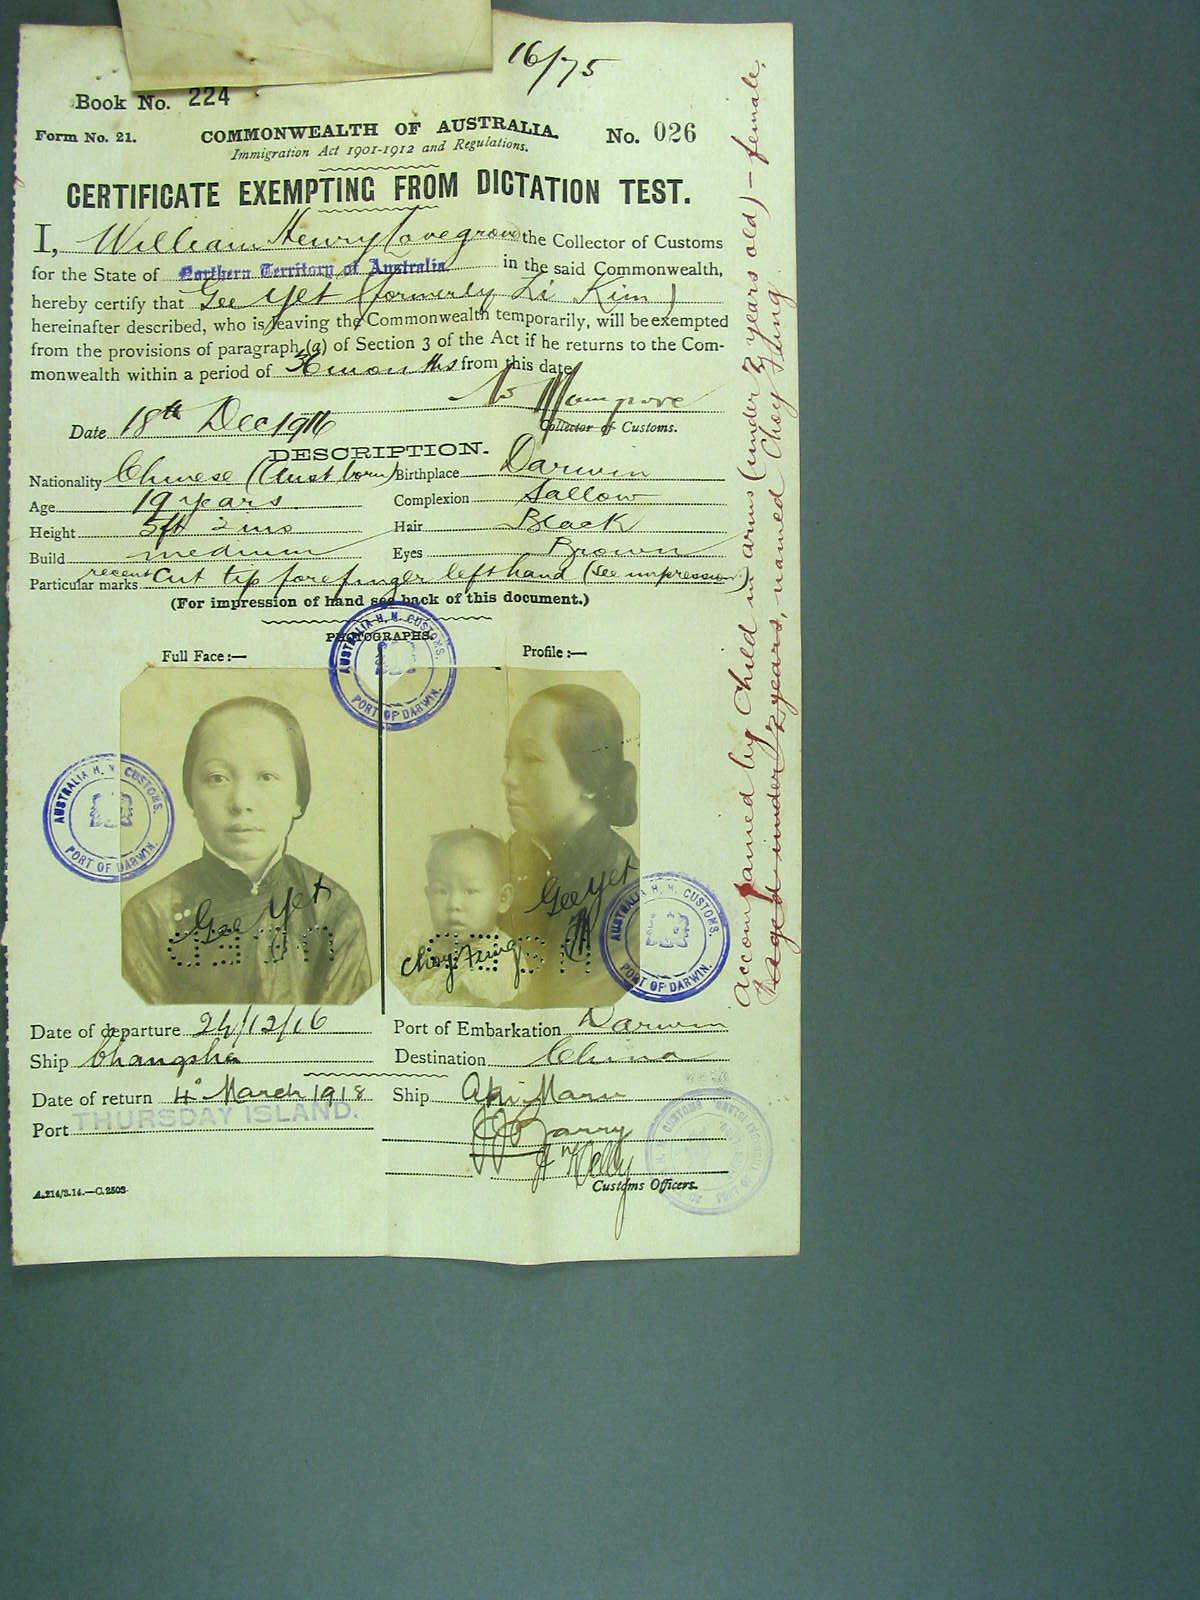 16/75
Book No. 224
Form No. 21.
COMMONWEALTH OF AUSTRALIA.
No. 026
Immigration Act 1901-1912 and Regulations.
CERTIFICATE EXEMPTING FROM DICTATION TEST.
I, William Henry Lovegrove the Collector of Customs
for the State of Northern Territory of Australia in the said Commonwealth,
hereby certify that Gee Yet (formerly Li Kim)
hereinafter described, who is leaving the Commonwealth temporarily, will be exempted
from the provisions of paragraph (a) of Section 3 of the Act if he returns to the Com-
monwealth within a period of 36 months from this date.
Date 18th Dec 1916
Collector of Customs.
DESCRIPTION.
Nationality Chinese (Aust born) Birthplace Darwin
Age 19 years Complexion Sallow
Height 5ft 2 ins Hair Black
Build medium Eyes Brown
Particular marks recent Cut tip forefinger left hand (see impression)
(For impression of hand see back of this document.)
PHOTOGRAPHS.
Full Face:—
Profile:—
AUSTRALIA H. M. CUSTOMS.
PORT OF DARWIN.
AUSTRALIA H. M. CUSTOMS.
PORT OF DARWIN.
Gee Yet
Gee Yet
Choy Fung
AUSTRALIA H. M. CUSTOMS.
PORT OF DARWIN.
Date of departure 24/12/16 Port of Embarkation Darwin
Ship Changsha Destination China
Date of return 4 March 1918 Ship Aki Maru
Port THURSDAY ISLAND.
Customs Officers.
A.214/3.14.—C.2503
accompanied by Child in arms (under 2 years old) — female,
aged under 2 years, named Choy Fung